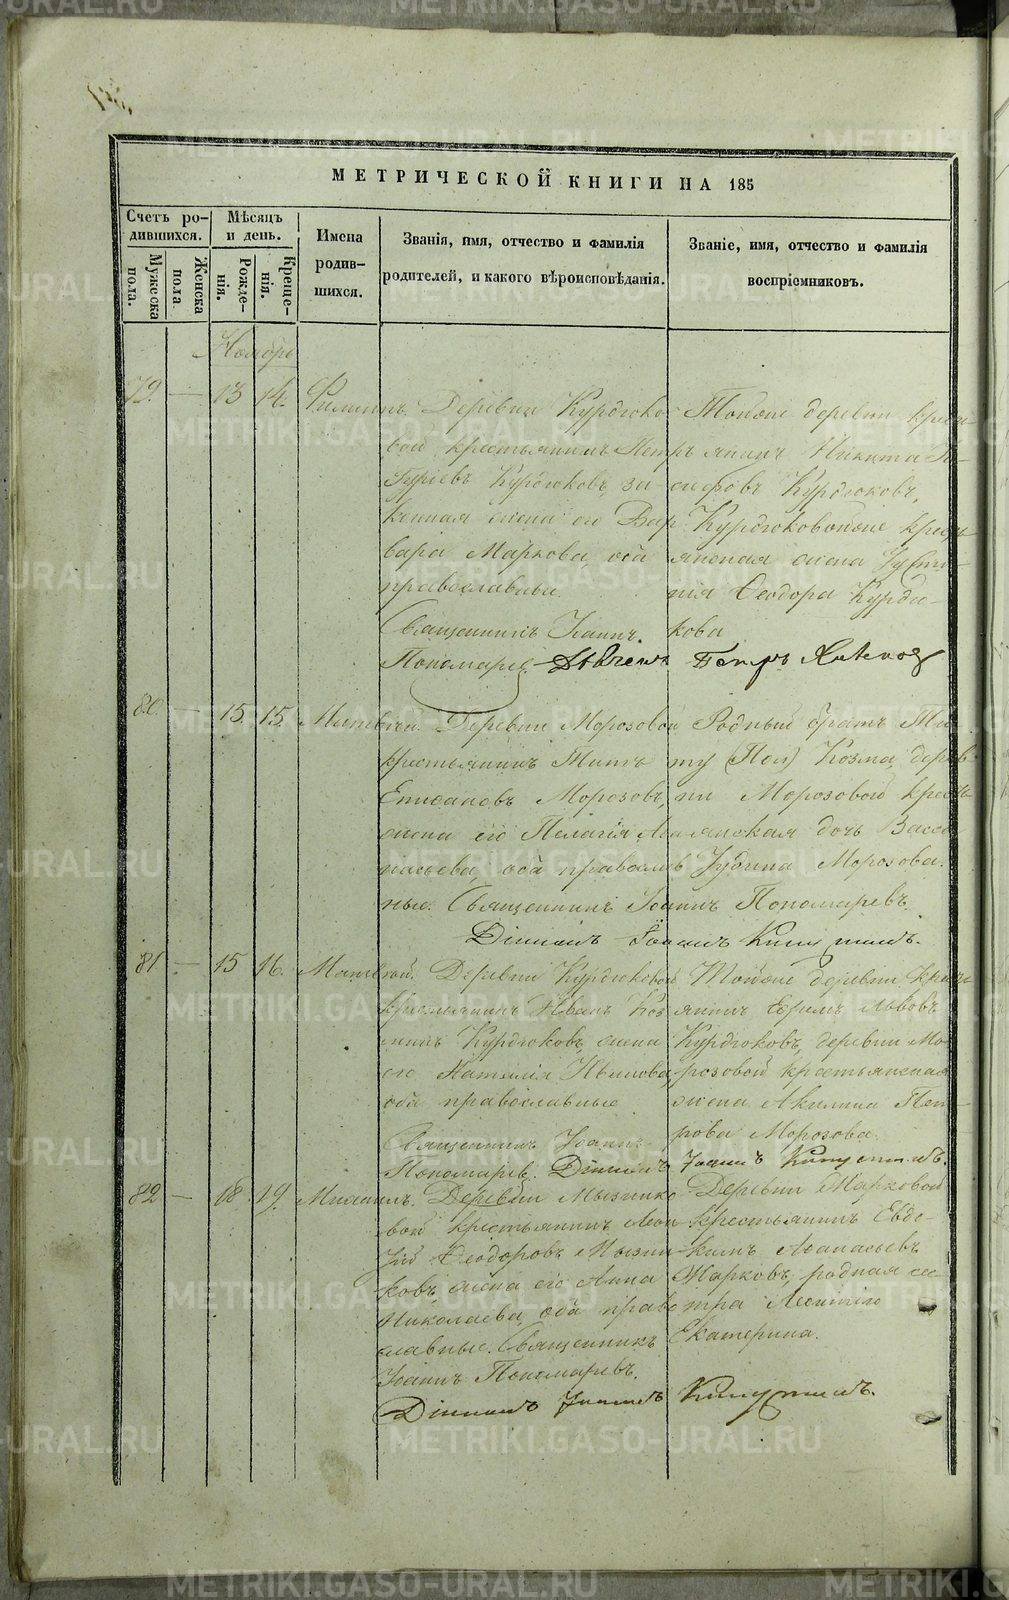 МЕТРИЧЕСКОЙ КНИГИ НА 185
Счетъ ро-
дившихся.
Мѣсяцъ
и день.
Имена
родив-
шихся.
Званія, имя, отчество и фамилія
родителей, и какого вѣроисповѣданія.
Званіе, имя, отчество и фамилія
воспріемниковъ.
Мужеска
пола.
Женска
пола
Рожде-
нія.
Креще-
нія.
Ноябрь
79. — 13 14. Филиппъ. Деревни Курдюко-
вой крестьянинъ Петръ
Гуріевъ Курдюковъ, за-
конная жена его Вар-
вара Маркова, оба
православные.
Священникъ Іоаннъ
Пономаревъ
Тойже деревни кресть-
янинъ Никита
Курдюковъ,
Курдюковойже кресть-
янская жена Усти-
нія Ѳеодора Курдю-
кова
Петръ
80. — 15. 15. Матвѣй. Деревни Морозовой
крестьянинъ Титъ
Морозовъ,
жена его Пелагія Аѳа-
насьева, оба православ-
ные. Священникъ Іоаннъ Пономаревъ
Родный братъ Ти-
ту Козма, дерев-
ни Морозовой кресть-
янская дочь Васса
Морозова.
Діаконъ Іоаннъ
81 — 15 16. Матвѣй. Деревни Курдюковой
крестьянинъ Иванъ Коз-
минъ Курдюковъ, жена
его Наталія Иванова,
оба православные
Священникъ Іоаннъ
Пономаревъ. Діаконъ Іоаннъ
Тойже деревни кресть-
янинъ Ефимъ Львовъ
Курдюковъ, деревни Мо-
розовой крестьянская
жена Акилина Пет-
рова Морозова.
82 — 18. 19. Михаилъ. Деревни Мызнико-
вой крестьянинъ Леон-
тій Ѳеодоровъ Мызни-
ковъ, жена его Анна
Николаева, оба право-
славные. Священникъ
Іоаннъ Пономаревъ.
Діаконъ Іоаннъ
Деревни Марковой
крестьянинъ Евдо-
кимъ Аѳанасьевъ
Марковъ, родная сес-
тра Леонтію
Екатерина.
METRIKI.GASO-URAL.RU